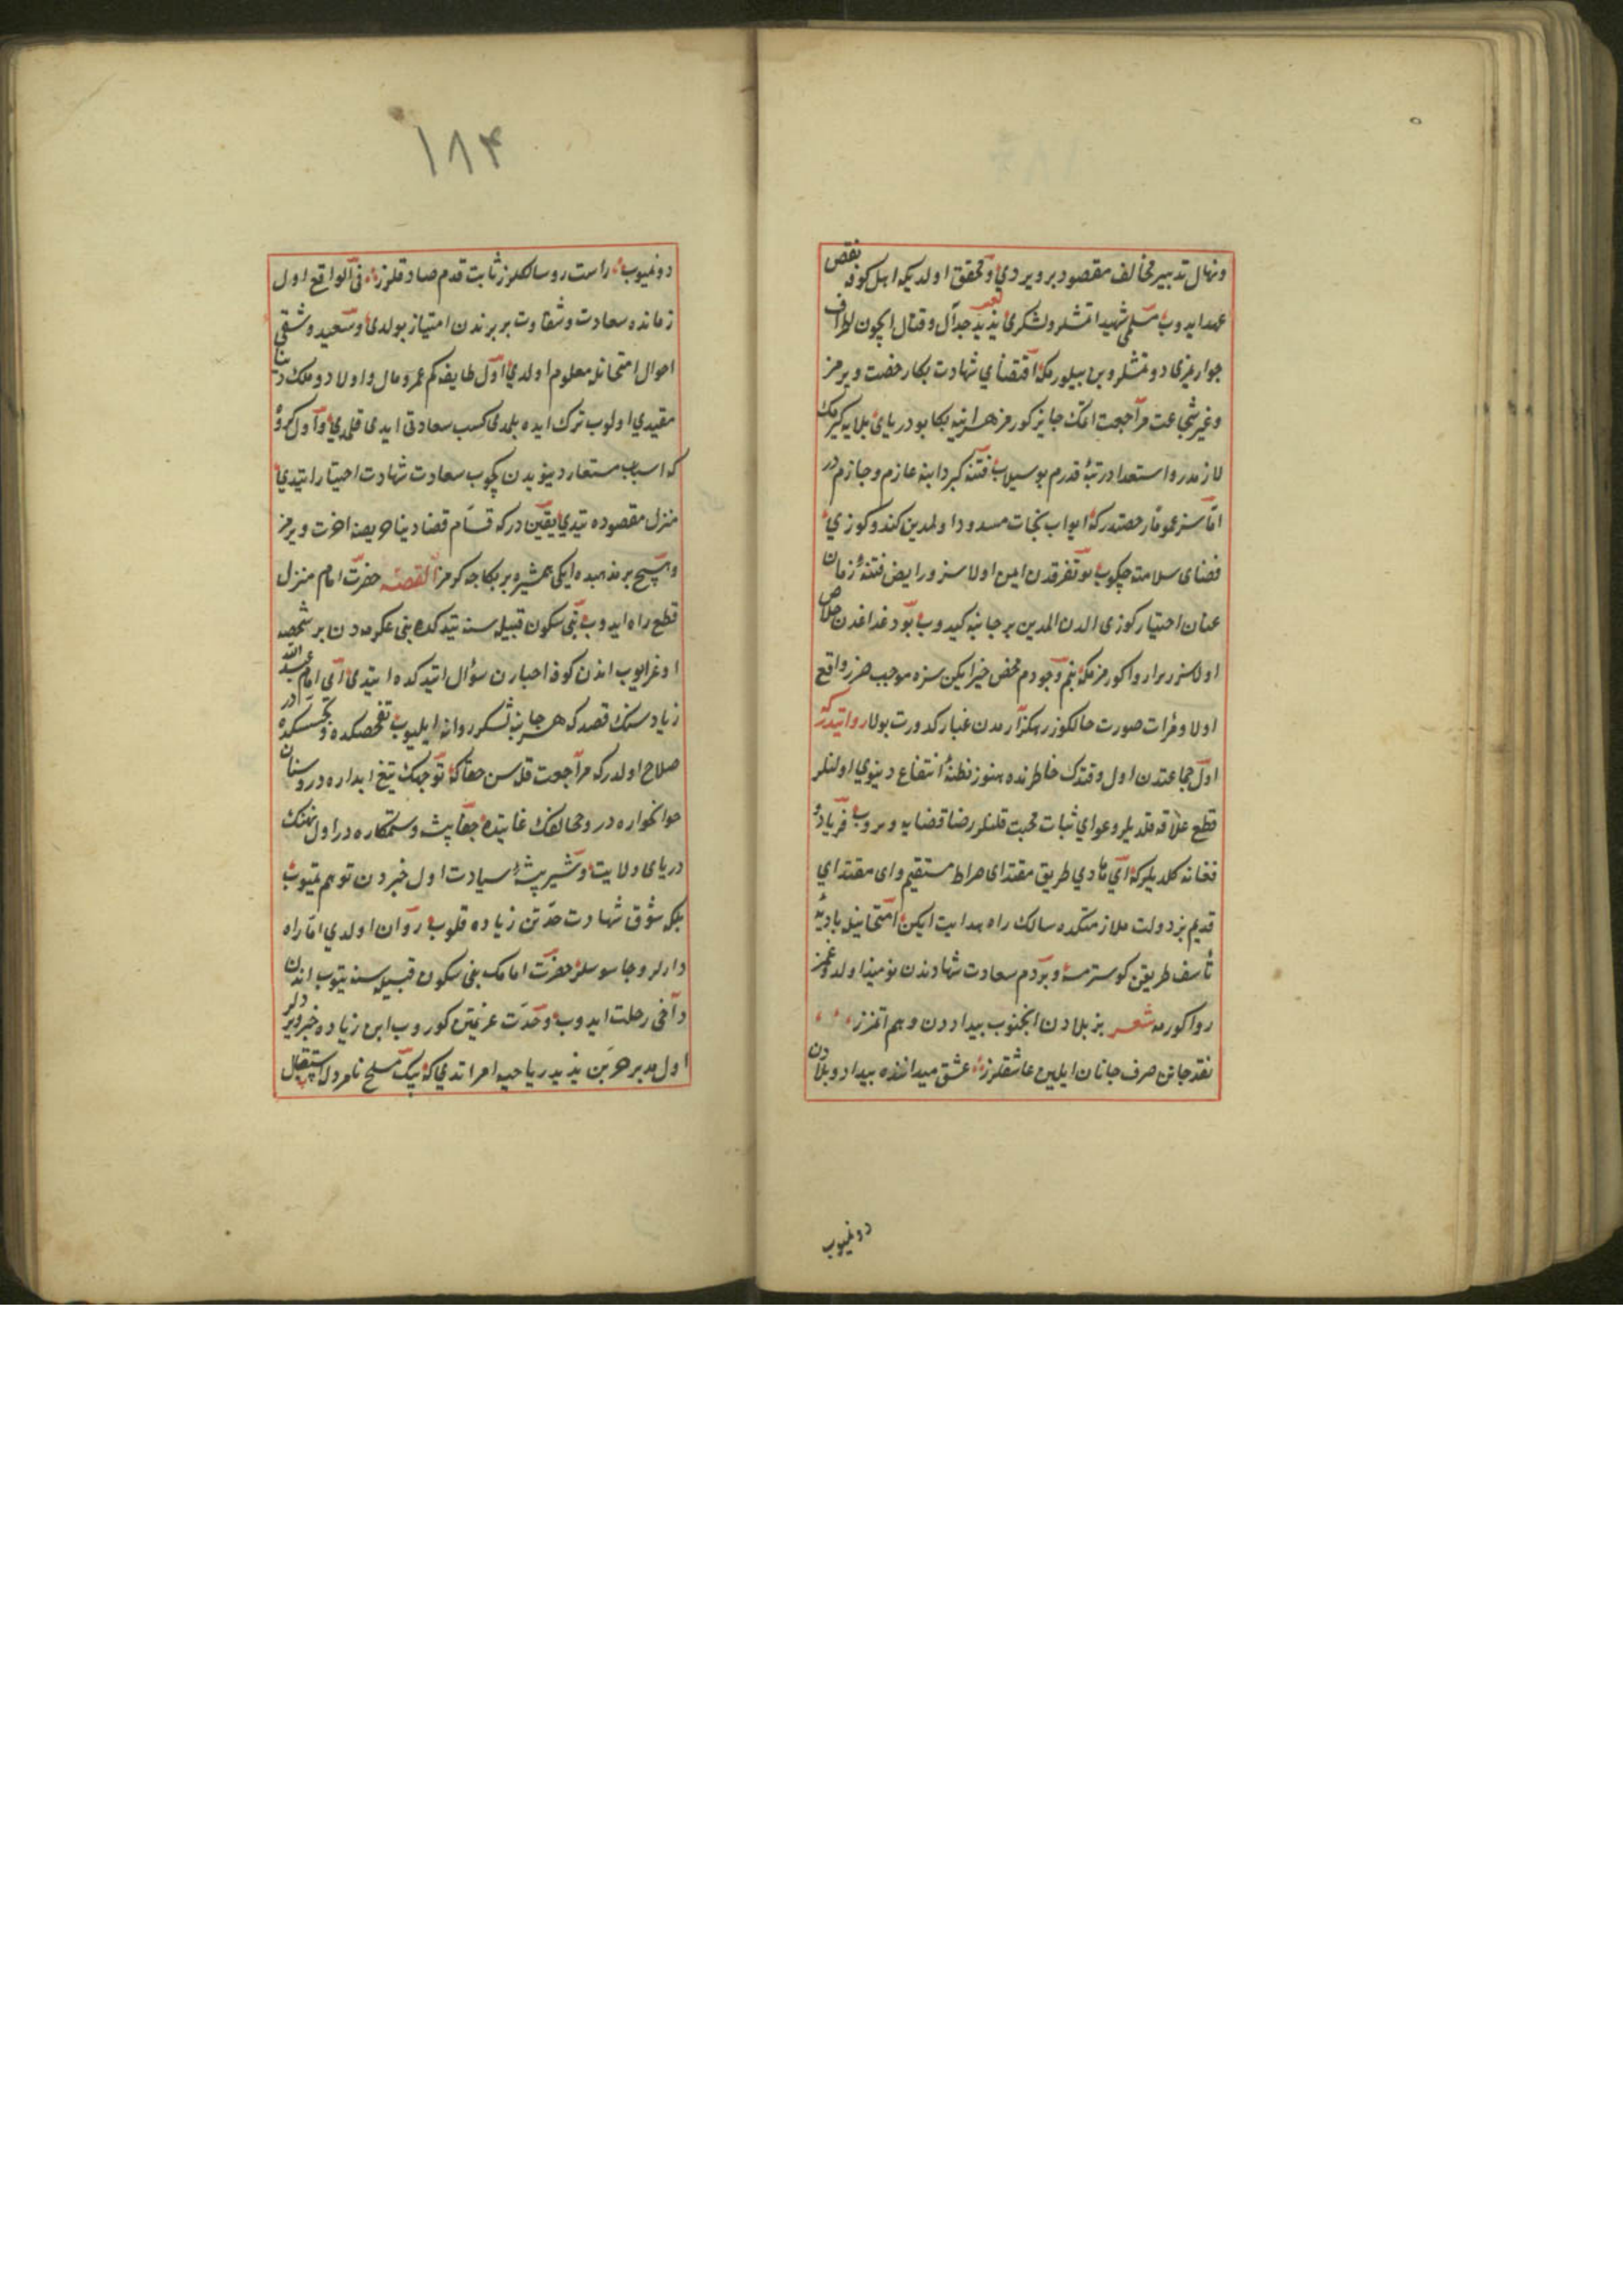 ونهال تدبیر مخالف مقصود بر ویردی و محقق اولدیکه اهل کوفه نقض
عهد ایدوب مسلمی شهید اتمشلر ولشکر یزید لعین جدال و قتال ایچون اطراف
جوارمزی دوتمشلر وبن بیلورمکه اقتضای شهادت بکا رخصت ویرمز
وغیر شجاعت مراجعت اتمک جایز کورمز هر آینه بکا بو دریای بلایه کیرمک
لازمدر و استعداد رتبۀ قدرم بو سیلاب فتنه کردابنه عازم وجازمدر
اما سز عموما رخصتدرکه ابواب نجات مسدود اولمدین کندوکوزی
فضای سلامته چکوب بو تفرقه‌دن امین اولاسز و رایض فتنۀ زمان
عنان اختیارکوزی الدن المدین بر جانبه کیدوب بو دغدغه‌دن خلاص
اولاسز زیرا روا کورمزمکه بنم وجودم محض خیر ایکن سزه موجب ضرر واقع
اولا و مرات صورت حالکوز رهکذارمدن غبار کدورت بولا روایتدرکه
اول جماعتدن اول وقتدک خاطرنده هنوز مظنۀ انتفاع دنیوی اولنلر
قطع علاقه قلدیلر و دعوای ثبات محبت قلنلر رضا قضایه ویروب فریاد و
فغانه کلدیلرکه ای هادی طریق مقتدای صراط مستقیم و ای مقتدای
قدیم بز دولت ملازمتکده سالک راه هدایت ایکن امتحانیله بادیۀ
تأسف طریقن کوسترمه و بردم سعادت شهادتدن نومید اولدوغمز
روا کورمه شعر بز بلادن اجتنوب بیداددن وهم اتمزز
نقد جانن صرف جانان ایلین عاشقلرز عشق میداننده بیداد و بلادن
دونمیوب
۱۸۴
دونمیوب راست رو سالکلرز ثابت قدم صادقلرز فی الواقع اول
زمانده سعادت و شقاوت بر برندن امتیاز بولدی و سعید و شقی
احوال امتحانله معلوم اولدی اول طایفه کم عمر و مال و اولاد و ملک دنیا
مقیدی اولوب ترک ایده بلمدی کسب سعادتی ابدی قلمدی و اول کروه
که اسباب مستعار دنیویدن کچوب سعادت شهادت اختیار ایتدی
منزل مقصوده یتدی یقین درکه قسام قضا دنیا حریصنه اخرت ویرمز
وهیچ بر مذهبده ایکی همشیره بر نکاحه کرمز القصه حضرت امام منزل
قطع راه ایدوب بنی سکون قبیله‌سنه یتدکده بنی عکرمه‌دن بر شخصه
اوغرایوب اندن کوفه اخبارن سؤال ایتدکده ایتدی ای امام عبید الله
زیاد سنک قصدکه هر جانبه لشکر روانه ایلیوب تفحصکده و تجسسکده در
صلاح اولدرکه مراجعت قلاسن حقا که توجهک تیغ ابداره در و سنان
خونخواره در و مخالفک غایتده جفا پیشه و ستمکاره در اول نهنک
دریای ولایت و شیر بیشۀ سیادت اول خبردن توهم اتمیوب
بلکه شوق شهادت حدتن زیاده قلوب روان اولدی اما راه
دارلر و جاسوسلر حضرت امامک بنی سکون قبیله‌سنه یتوب اندن
داخی رحلت ایدوب وحدت عزیمتن کوروب ابن زیاده خبر ویردلر
اول مدبر حر بن یزید ریاحیه امر اتدی که بیک مسلح نامردله استقبال